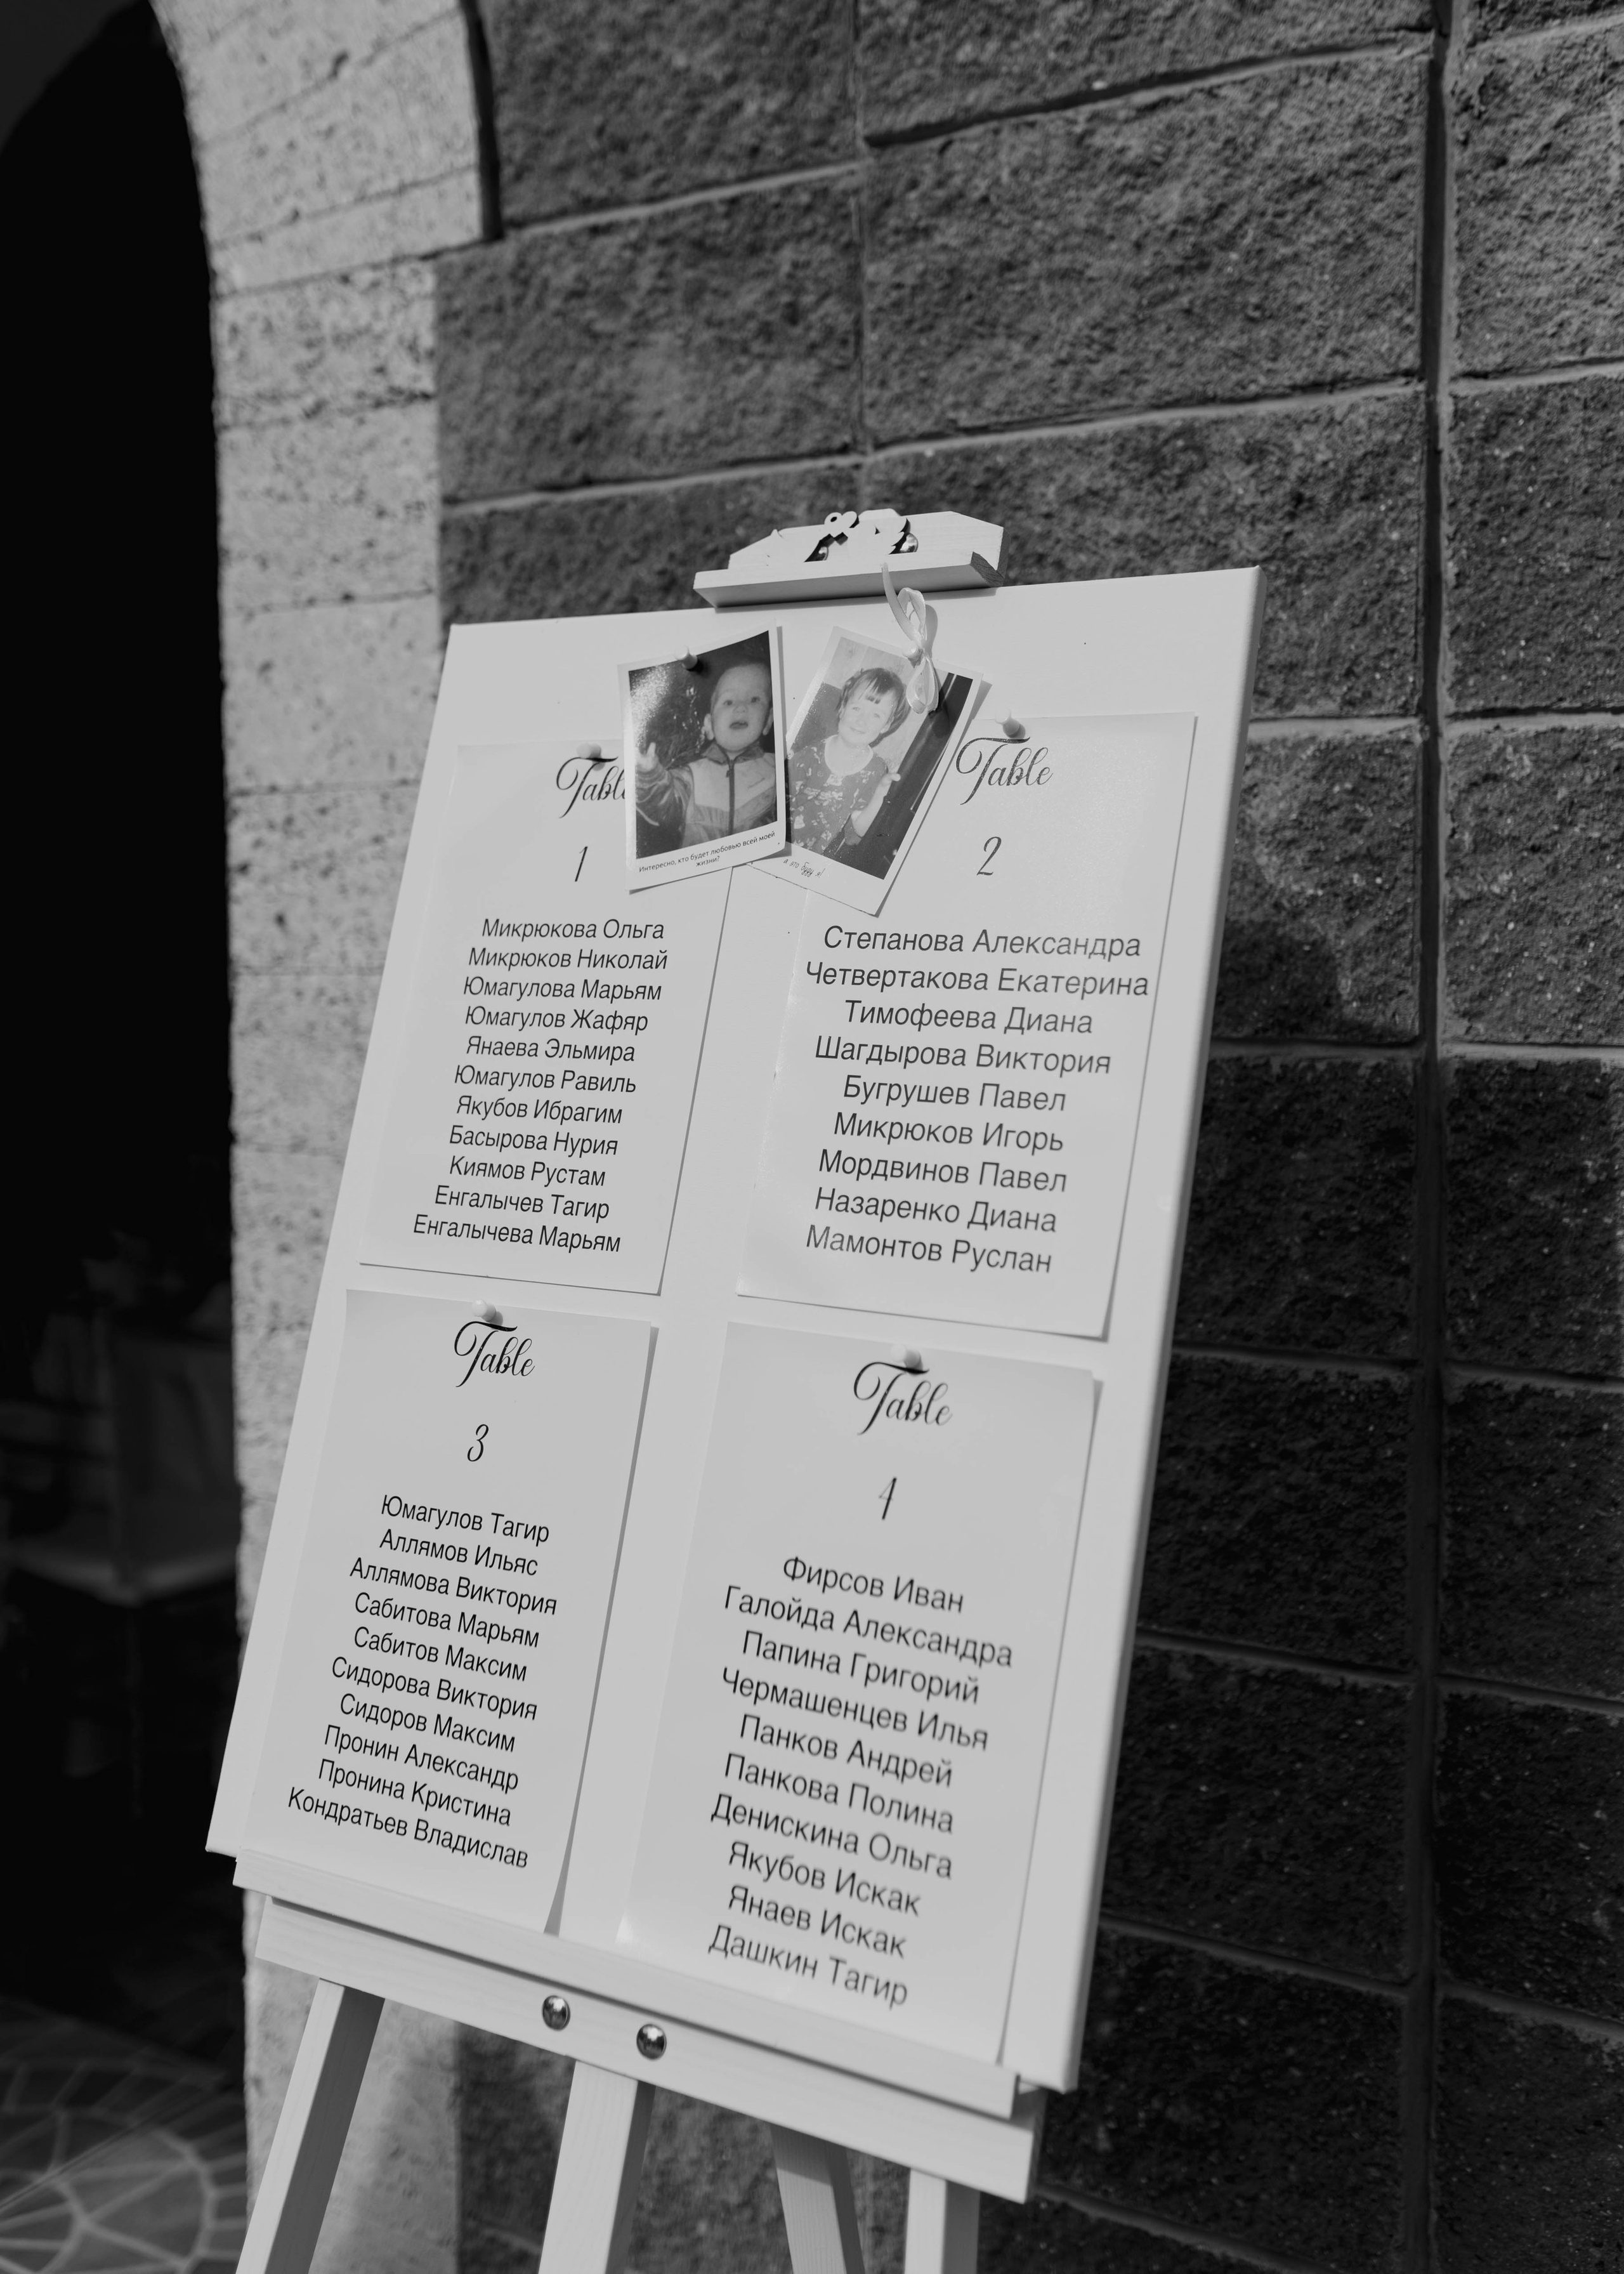 Интересно, кто будет любовью всей моей
жизни?
а это буду я!
Table
1
Микрюкова Ольга
Микрюков Николай
Юмагулова Марьям
Юмагулов Жафяр
Янаева Эльмира
Юмагулов Равиль
Якубов Ибрагим
Басырова Нурия
Киямов Рустам
Енгалычев Тагир
Енгалычева Марьям
Table
2
Степанова Александра
Четвертакова Екатерина
Тимофеева Диана
Шагдырова Виктория
Бугрушев Павел
Микрюков Игорь
Мордвинов Павел
Назаренко Диана
Мамонтов Руслан
Table
3
Юмагулов Тагир
Аллямов Ильяс
Аллямова Виктория
Сабитова Марьям
Сабитов Максим
Сидорова Виктория
Сидоров Максим
Пронин Александр
Пронина Кристина
Кондратьев Владислав
Table
4
Фирсов Иван
Галойда Александра
Папина Григорий
Чермашенцев Илья
Панков Андрей
Панкова Полина
Денискина Ольга
Якубов Искак
Янаев Искак
Дашкин Тагир